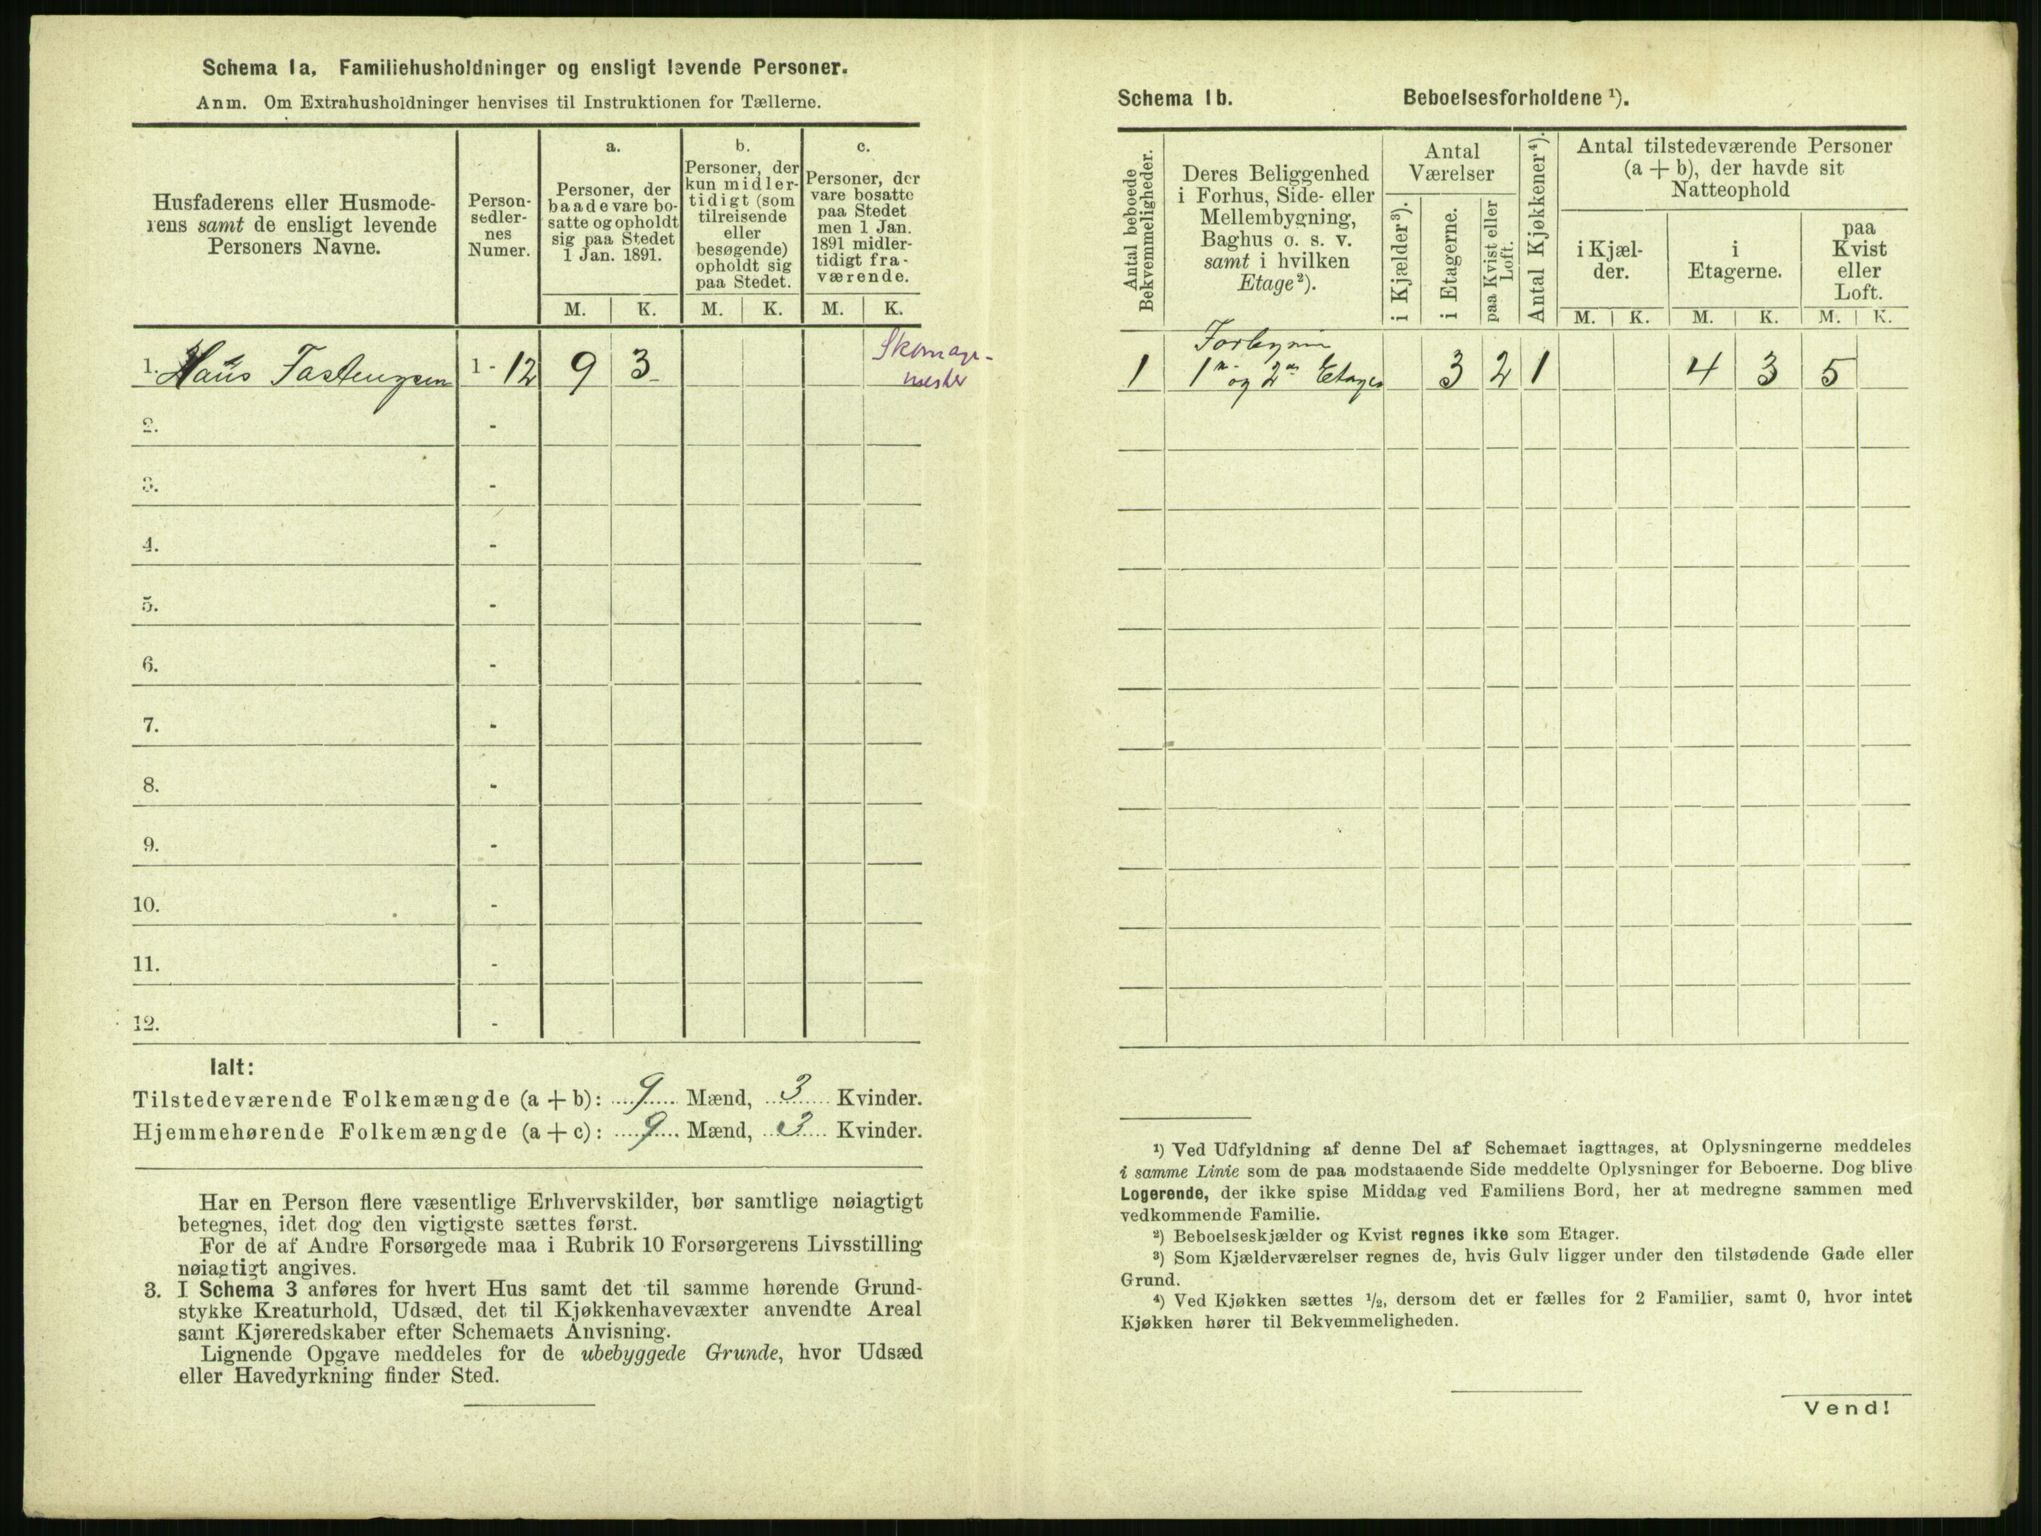 Schema 1a. Familiehusholdninger og ensligt levende Personer.
Anm. Om Extrahusholdninger henvises til Instruktionen for Tællerne.
Husfaderens eller Husmode-
rens samt de ensligt levende
Personers Navne.
Person-
sedler-
nes
Numer.
a.
Personer, der
baade vare bo-
satte og opholdt
sig paa Stedet
1 Jan. 1891.
b.
Personer, der
kun midler-
tidigt (som
tilreisende
eller
besøgende)
opholdt sig
paa Stedet.
c.
Personer, der
vare bosatte
paa Stedet
men 1 Jan.
1891 midler-
tidigt fra-
værende.
M. K. M. K. M. K.
1. Hans 1 - 12 9 3
Skomager-
mester
2. -
3. -
4. -
5. -
6. -
7. -
8. -
9. -
10. -
11. -
12. -
Ialt:
Tilstedeværende Folkemængde (a + b): 9 Mænd, 3 Kvinder.
Hjemmehørende Folkemængde (a + c): 9 Mænd, 3 Kvinder.
Har en Person flere væsentlige Erhvervskilder, bør samtlige nøiagtigt
betegnes, idet dog den vigtigste sættes først.
For de af Andre Forsørgede maa i Rubrik 10 Forsørgerens Livsstilling
nøiagtigt angives.
3. I Schema 3 anføres for hvert Hus samt det til samme hørende Grund-
stykke Kreaturhold, Udsæd, det til Kjøkkenhavevæxter anvendte Areal
samt Kjøreredskaber efter Schemaets Anvisning.
Lignende Opgave meddeles for de ubebyggede Grunde, hvor Udsæd
eller Havedyrkning finder Sted.
Schema 1b. Beboelsesforholdene ¹).
Antal beboede
Bekvemmeligheder.
Deres Beliggenhed
i Forhus, Side- eller
Mellembygning,
Baghus o. s. v.
samt i hvilken
Etage²).
Antal
Værelser
i Kjælder³).
i Etagerne.
paa Kvist eller
Loft.
Antal Kjøkkener⁴).
Antal tilstedeværende Personer
(a + b), der havde sit
Natteophold
i Kjæl-
der.
i
Etagerne.
paa
Kvist
eller
Loft.
M. K. M. K. M. K.
1 1ste og 2den Etager 3 2 1 4 3 5
¹) Ved Udfyldning af denne Del af Schemaet iagttages, at Oplysningerne meddeles
i samme Linie som de paa modstaaende Side meddelte Oplysninger for Beboerne. Dog blive
Logerende, der ikke spise Middag ved Familiens Bord, her at medregne sammen med
vedkommende Familie.
²) Beboelseskjælder og Kvist regnes ikke som Etager.
³) Som Kjælderværelser regnes de, hvis Gulv ligger under den tilstødende Gade eller
Grund.
⁴) Ved Kjøkken sættes ½, dersom det er fælles for 2 Familier, samt 0, hvor intet
Kjøkken hører til Bekvemmeligheden.
Vend!